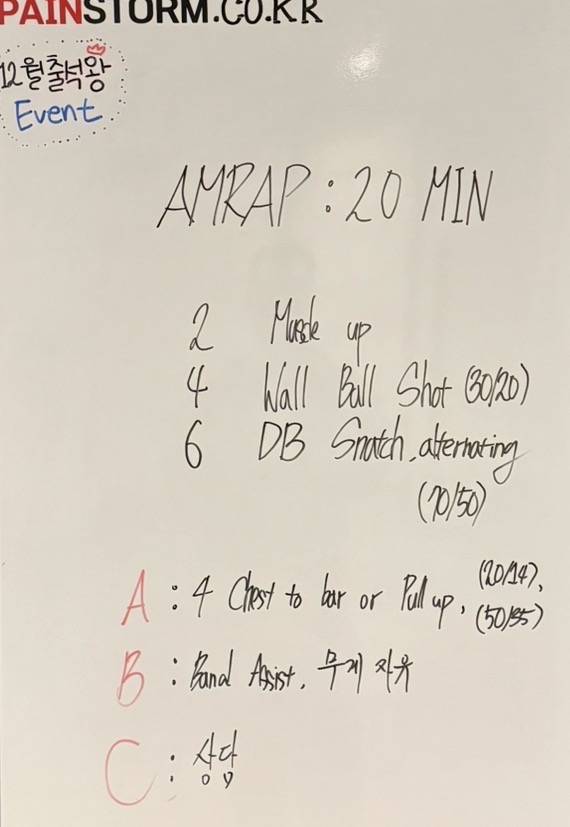 PAINSTORM.CO.KR
12월 출석왕
Event
AMRAP : 20 MIN
2 Muscle up
4 Wall Ball Shot (30/20)
6 DB Snatch, alternating
(70/50)
A : 4 Chest to bar or Pull up, (20/14),
(50/35)
B : Band Assist, 무게 자유
C : 상담